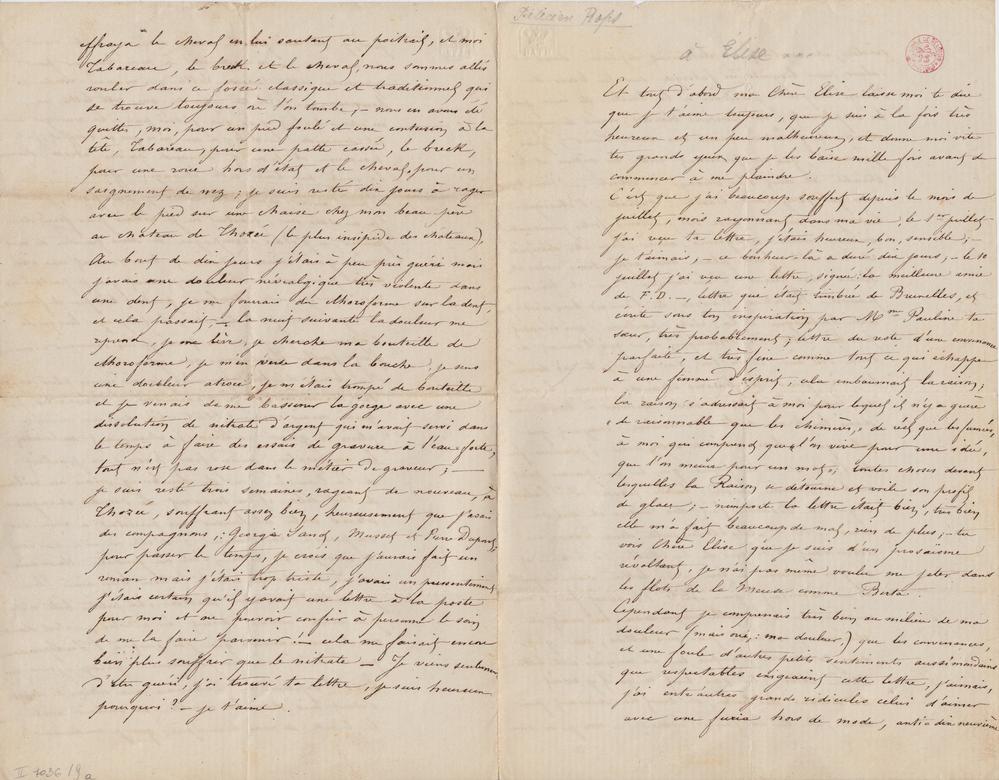 effroyé le cheval en lui sautant au poitrail, et moi
Tabareau, le breck et le cheval, nous sommes allés
rouler dans ce fossé classique et traditionnel qui
se trouve toujours où l'on tombe; — nous en avons été
quittes, moi, pour un pied foulé et une contusion à la
tête, Tabareau, pour une patte cassée, le breck,
pour une roue hors d'état et le cheval, pour un
saignement de nez; je suis resté dix jours à rager
avec le pied sur une chaise chez mon beau père
au château de Thozée (le plus insipide des châteaux),
Au bout de dix jours j'étais à peu près guéri mais
j'avais une douleur névralgique très violente dans
une dent, je me fourrais du chloroforme sur la dent,
et cela passait, — la nuit suivante la douleur me
reprend, je me lève, je cherche ma bouteille de
chloroforme, je m'en verse dans la bouche, je sens
une douleur atroce, je m'étais trompé de bouteille
et je venais de me bassiner la gorge avec une
dissolution de nitrate d'argent qui m'avait servi dans
le temps à faire des essais de gravure à l'eau-forte,
tout n'est pas rose dans le métier de graveur; —
je suis resté trois semaines, rageant de nouveau, à
Thozée, souffrant assez bien, heureusement que j'avais
des compagnons: George Sand, Musset et Pierre Dupont,
pour passer le temps, je crois que j'aurais fait un
roman mais j'étais trop triste, j'avais un pressentiment
j'étais certain qu'il y avait une lettre à la poste
pour moi et ne pouvoir confier à personne le soin
de me la faire parvenir! — cela me faisait encore
bien plus souffrir que le nitrate — Je viens seulement
d'être guéri, j'ai trouvé ta lettre, je suis heureux
pourquoi? — je t'aime.
II 7036/9a
Félicien Rops
à Elise ...
Et tout d'abord ma Chère Elise laisse moi te dire
que je t'aime toujours, que je suis à la fois très
heureux et un peu malheureux, et donne moi vite
tes grands yeux que je les baise mille fois avant de
commencer à me plaindre.
C'est que j'ai beaucoup souffert depuis le mois de
juillet, mois rayonnant dans ma vie, le 1er juillet
j'ai reçu ta lettre, j'étais heureux, bon, sensible; —
je t'aimais, — ce bonheur-là a duré dix jours; — le 10
juillet j'ai reçu une lettre, signée: la meilleure amie
de F. D. —, lettre qui était timbrée de Bruxelles, et
écrite sous ton inspiration par Mme Pauline ta
sœur, très probablement; lettre du reste d'une convenance
parfaite, et très fine comme tout ce qui échappe
à une femme d'esprit, cela embaumait la raison,
la raison s'adressait à moi pour lequel il n'y a guère
de raisonnable que les chimères, de réel que les fumées,
à moi qui comprend que l'on vive pour une idée,
que l'on meure pour un mot; toutes choses devant
lesquelles la Raison se détourne et voile son profil
de glace; — n'importe la lettre était bien, très bien
elle m'a fait beaucoup de mal, rien de plus, — tu
vois Chère Elise que je suis d'un prosaïsme
révoltant, je n'ai pas même voulu me jeter dans
les flots de la Meuse comme Berta.
Cependant je comprenais très bien au milieu de ma
douleur (mais oui: ma douleur!) que les convenances,
et une foule d'autres petits sentiments aussi mondains
que respectables exigeaient cette lettre, j'aimais,
j'ai entr'autres grands ridicules celui d'aimer
avec une furia hors de mode, anti-dix neuvième